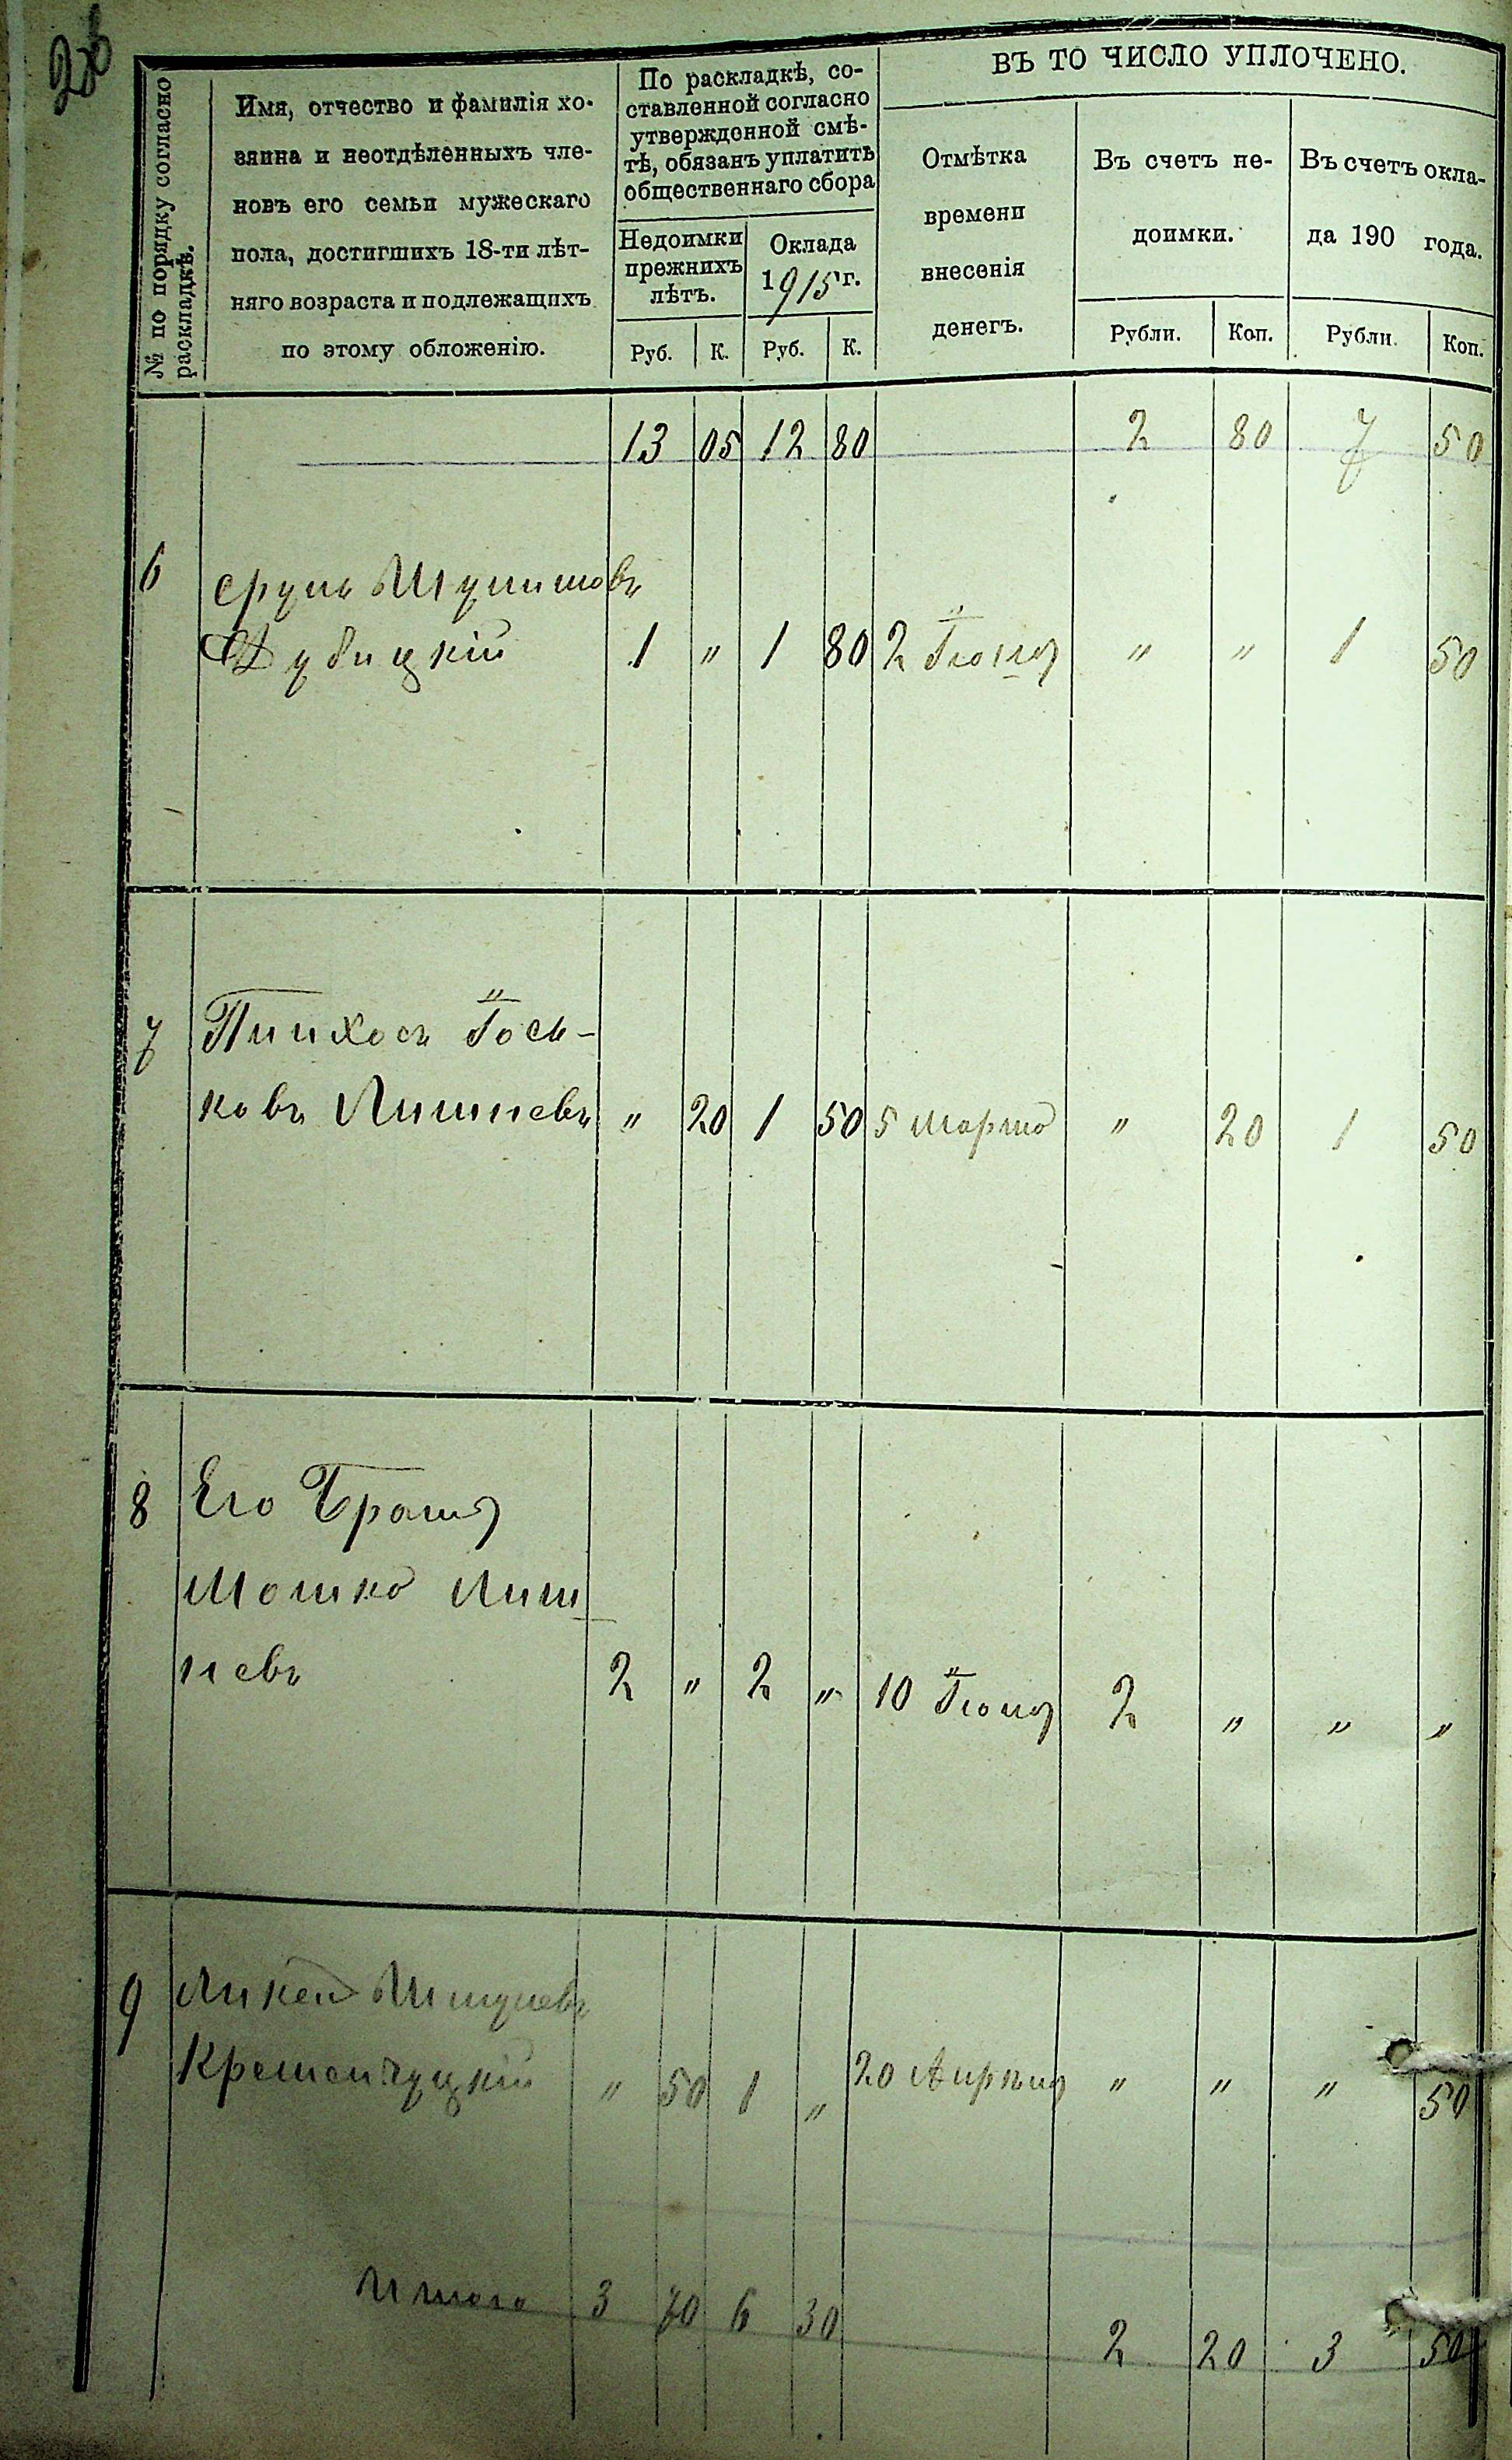 206
№ по порядку согласно раскладкѣ.
Имя, отчество и фамилія хо-
зяина и неотдѣленныхъ чле-
новъ его семьи мужескаго
пола, достигшихъ 18-ти лѣт-
няго возраста и подлежащихъ
по этому обложенію.
По раскладкѣ, со-
ставленной согласно
утвержденной смѣ-
тѣ, обязанъ уплатить
общественнаго сбора
Недоимки
прежнихъ
лѣтъ.
Оклада
1915 г.
Руб. К. Руб. К.
ВЪ ТО ЧИСЛО УПЛОЧЕНО.
Отмѣтка
времени
внесенія
денегъ.
Въ счетъ не-
доимки.
Въ счетъ окла-
да 190 года.
Рубли. Коп. Рубли. Коп.
13 05 12 80 2 80 7 50
6 Сруль
Дубицкій 1 " 1 80 2 Іюня " " 1 50
7 Пинхосъ Іось-
ковъ Лишневъ " 20 1 50 5 марта " 20 1 50
8 Его Братъ
Мошко Лиш
невъ 2 " 2 " 10 Іюня 2 " " "
9
Кременчуцкій " 50 1 " 20 Апрѣля " " " 50
Итого 3 70 6 30 2 20 3 50